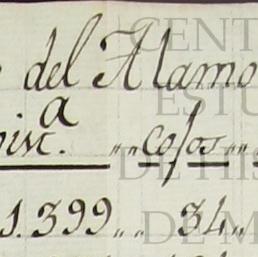 del Alamo
a
„ cosos „
1.399 „ 34 „
CENT
ESTU
DE HIS
DE M